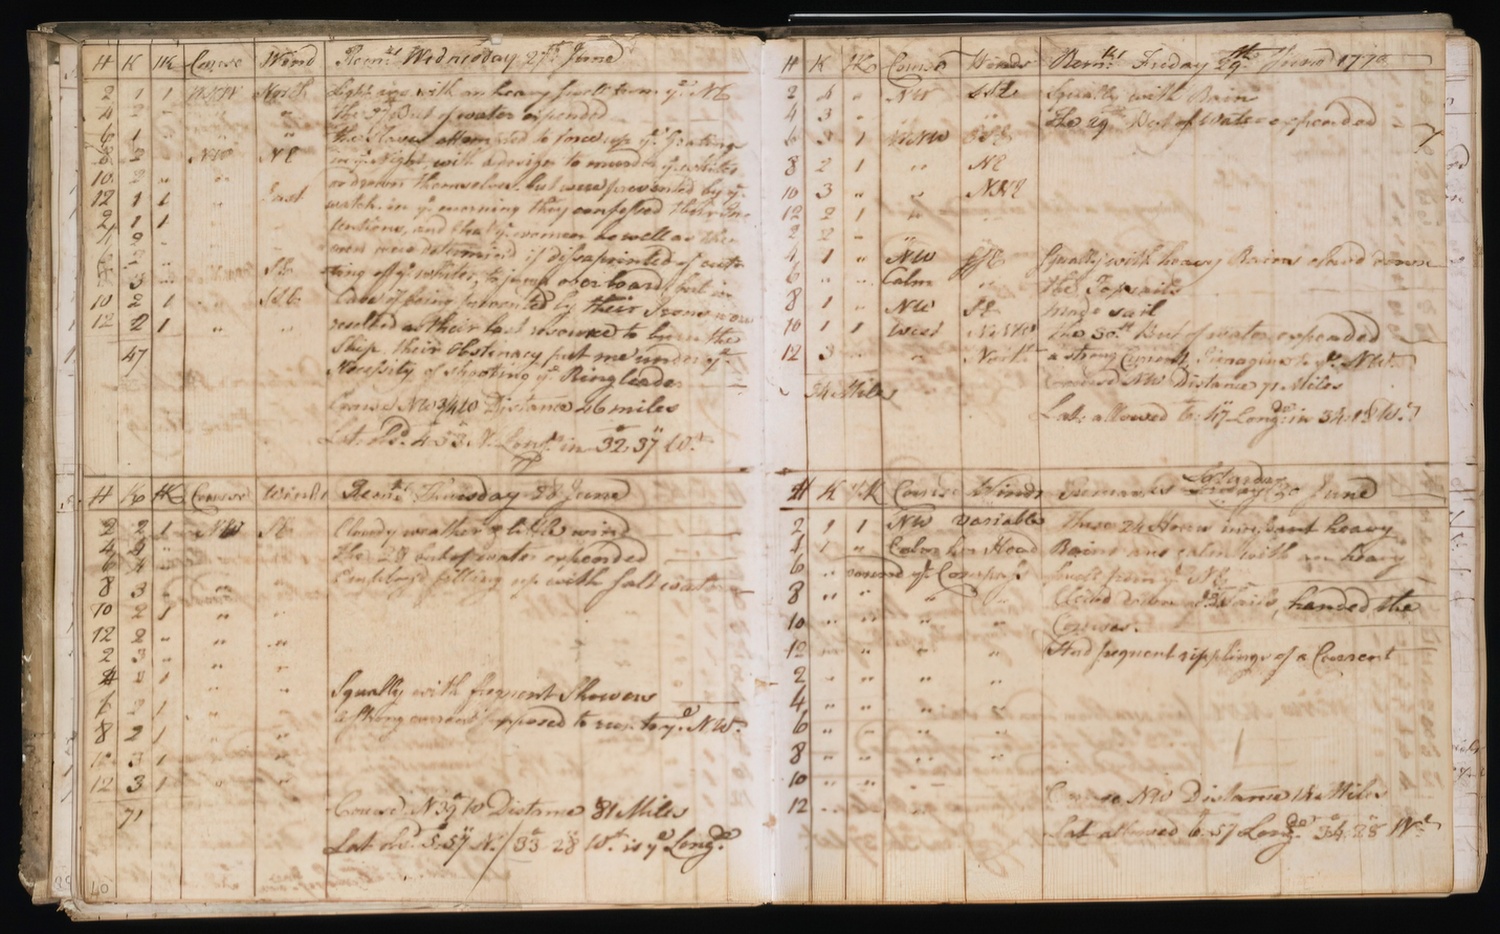 H K HK Course Wind Remks Wednesday 27th June
2 1 1 WNW North Light airs with an heavy swell from ye NE
4 2 " " " the 27th But of water expended
6 1 " " " the Slaves attempted to force up ye Gratings
8 2 " NW NE in ye Night, with a design to murder ye whites
10 2 " " or drown themselves, but were prevented by ye
12 1 1 " East watch. in ye morning they confessed their In=
2 1 1 tentions, and that ye women as well as the
4 2 " men were determined if disapointed of cut=
" ting off ye whites, to jump over board, but in
3 " SE
10 2 1 " SSE Case of being prevented by their Irons were
12 2 1 " " resolved as their last resource to burn the
47 Ship. their Obstinacy put me under ye
Necessity of shooting ye Ringleader
Course NW3/4W Distance 46 miles
Lat: obd. 4°53 N. Longd. in 32°37 Wt
H K HK Course Winds Remks Thursday 28 June
2 2 1 NW SE Cloudy weather & little wind
4 4 " the 28 but of water expended
6 4 " Employd filling up with salt water
8 3 " " "
10 2 1 " "
12 2 " " "
2 3 " " "
4 1 " "
Squally with frequent Showers
1 " " a strong current supposed to run to ye NW.
8 2 1 " "
10 3 1 "
12 3 1 " "
71 Course N39°W Distance 81 Miles
Lat obd. 5°57 N./33°28 Wt is ye Longd.
40
H K HK Course Winds Remks Friday 29th June 1770
2 4 " NW SSE Squally with Rain
4 3 " " The 29th But of Water expended
6 3 1 WNW SSE
8 2 1 " NE
10 3 " " NNE
12 2 1 "
2 2 " "
4 1 " NW SSE Squally with heavy Rains clued down
6 " " Calm " the Topsails
8 1 " NW SE made sail
10 1 1 West The 30th But of water expended
12 3 " " North a strong Current, I imagine to ye NWt
54 Miles Course NW Distance 71 Miles
Lat: allowed 6:47 Longd: in 34:18 Wt
H K HK Course Winds Remarks Saturday 30 June
2 1 1 NW variable These 24 Hours incessant heavy
4 1 " Calm her Head Rains and calm with an heavy
6 " round ye Compass swell from ye NE
8 " " " " Clued down ye Tsails, handed the
10 " " " " Courses.
12 " " " " Had frequent ripplings of a Current
2 " " "
4 " " " "
6 " " " "
8 " " " "
10 " " "
12 " " " Course NW Distance Miles
Lat allowed 6°57 Longd. 34°28 Wt